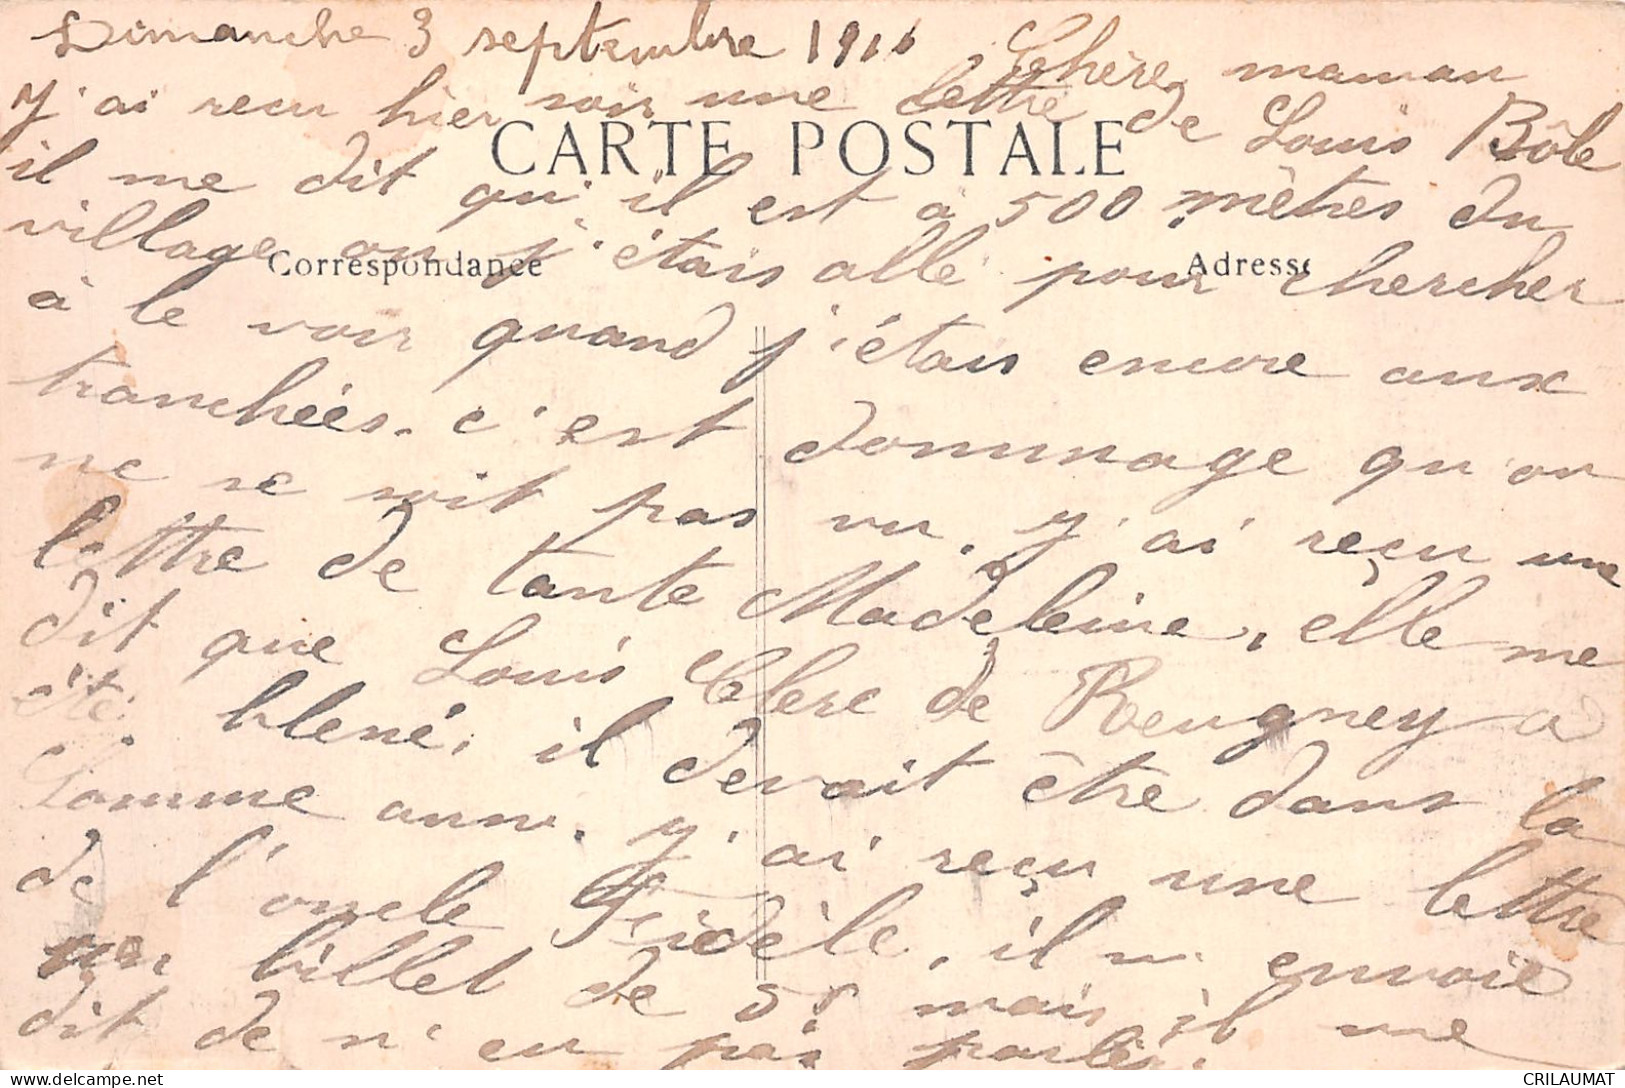 Dimanche 3 septembre 1916 Chère maman
J'ai reçu hier soir une lettre de Louis Bôle
CARTE POSTALE
il me dit qu'il est à 500 mètres du
village ou j'étais allé pour chercher
Correspondance Adresse
à le voir quand j'étais encore aux
tranchées. c'est dommage qu'on
ne se soit pas vu. J'ai reçu une
lettre de tante Madeleine, elle me
dit que Louis Clerc de Reugney a
été blessé, il devait être dans la
Somme. J'ai reçu une lettre
de l'oncle Fidèle, il m'envoie
un billet de 5f mais il me
dit de n'en pas parler.
CRILAUMAT